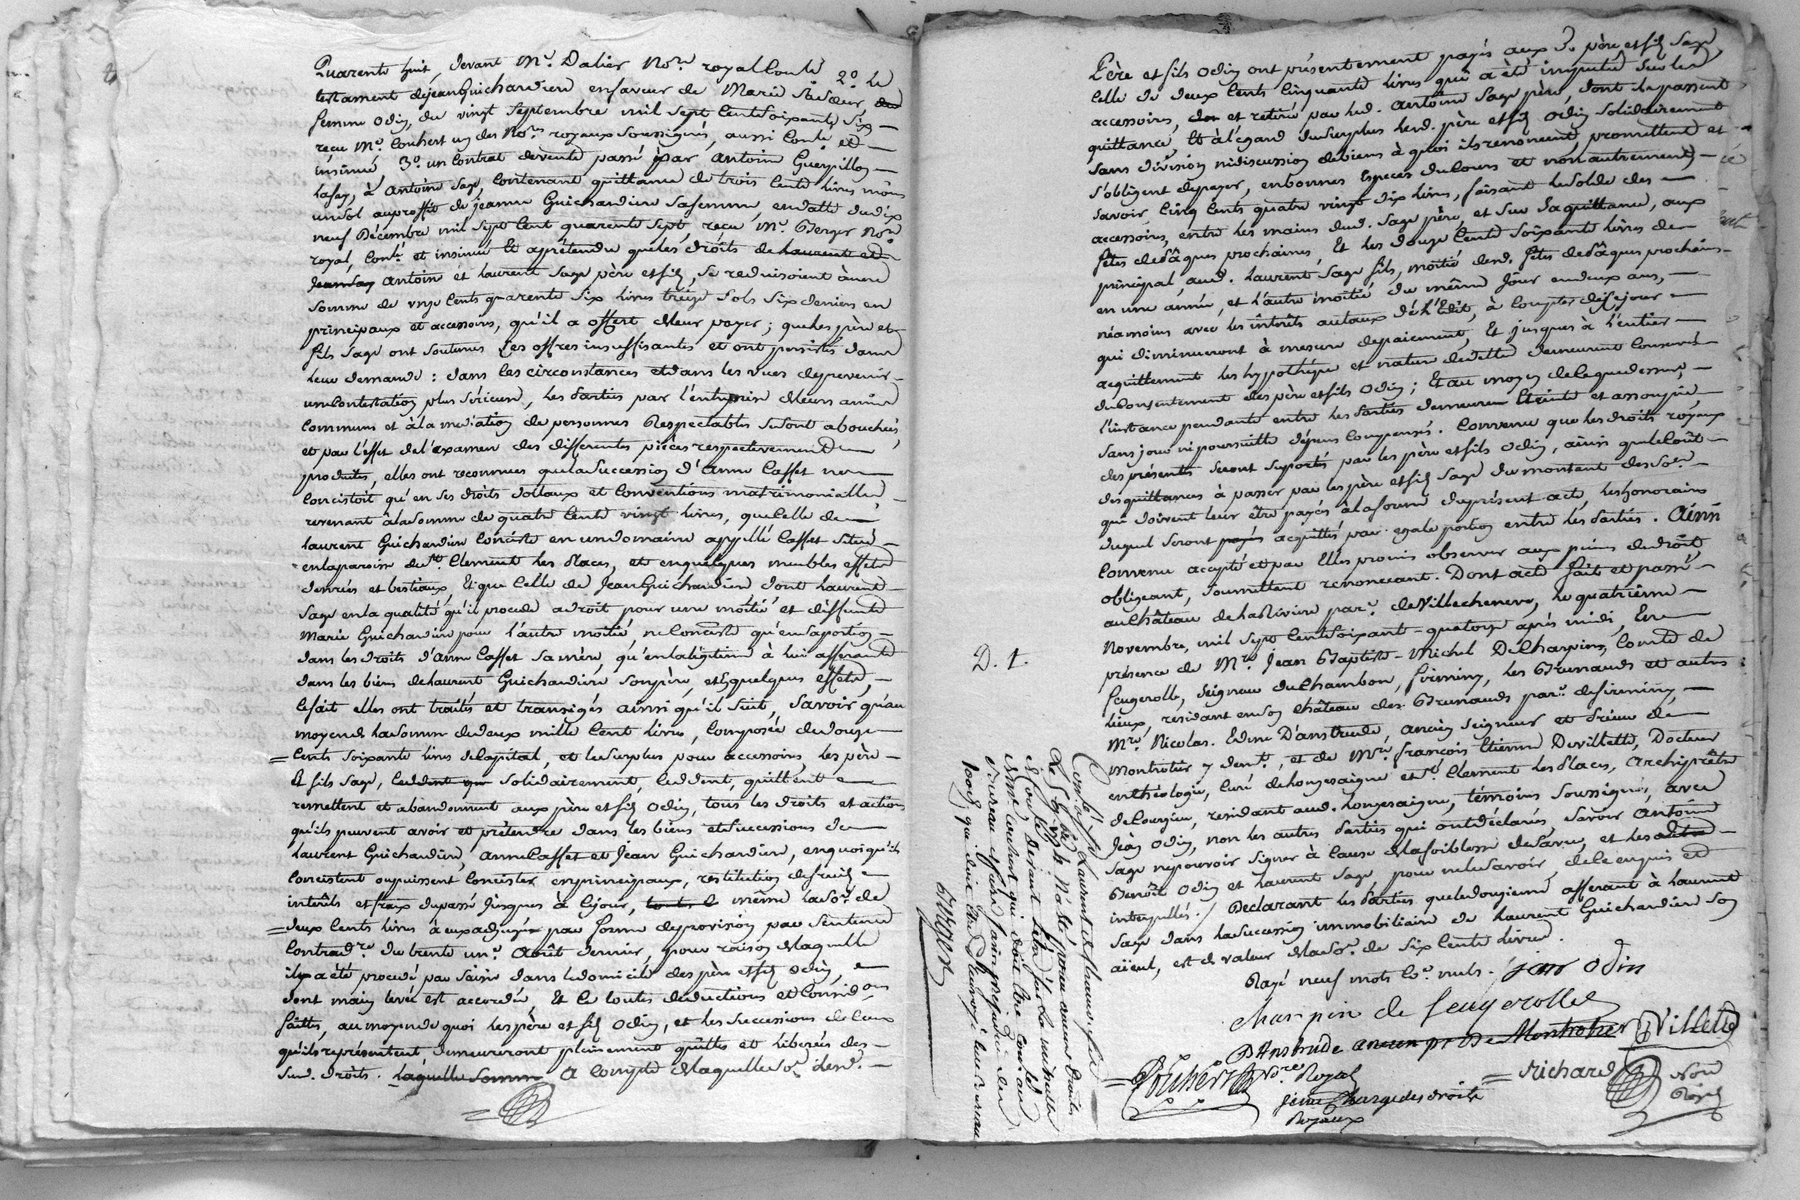 Quarente huit, devant Mr. Dalier Nore. royal Contlé 2° Le
testament de jean Guichardien en faveur de Marie sa sœur
femme Odin, du vingt septembre mil sept cent soixante six
recu Me. Couhert un des Nores. royaux soussignés, aussi Conlé et
insinué, 3° un contrat de vente passé par antoine Guerpillon
à antoine Sage, Contenant quittance de trois cents livres moins
un sol au proffit de jeanne Guichardien sa femme, en datte du dix
neuf Décembre mil sept cent quarente sept recu Mr. Berger Nore.
royal, Conlé. et insinué Et a prétendu que les droits de
antoine et Laurent Sage père et fils, se reduisoient à une
somme de onze cents quarente six livres treize sols six deniers en
principaux et accessoirs, qu'il a offert de leur payer ; que les père et
fils Sage ont soutenus les offres insuffisantes et ont persistés dans
leur demande : dans les circonstances et dans les vues de prevenir
une contestation plus sérieuse, les Parties par l'entremise de leurs amis
communs et à la médiation de personnes Respectables se sont abouchées,
et par l'effet de l'examen des differentes pièces respectivement
produites, elles ont reconnues que la succession d'anne Caffet ne
concistoit qu'en ses droits dottaux et conventions matrimonialles
revenant à la somme de quatre cents vingt livres, que celle de
Laurent Guichardien conciste en un domaine appellé Caffet situé
en la paroisse de St. Clement les Places, et en quelques meubles effets
denrées et bestiaux, Et que celle de Jean Guichardien dont Laurent
Sage en la qualité qu'il procede a droit pour une moitié et deffunte
Marie Guichardien pour l'autre moitié, ne conciste qu'en sa portion
dans les droits d'anne Caffet sa mère, qu'en la légitime à lui afferante
dans les biens de Laurent Guichardien son père, et en quelques effets,
ce fait elles ont traités et transigés ainsi qu'il suit, savoir qu'au
moyen de la somme de deux mille cent livres, Composée de douze
cents soixante livres de capital, et le surplus pour accessoirs, les père
Et fils Sage, solidairement, ceddent, quittent
remettent et abandonnent aux père et fils Odin, tous les droits et actions
qu'ils peuvent avoir et prétendre dans les biens et successions de
Laurent Guichardien, anne Caffet et Jean Guichardien, en quoi qu'ils
concistent ou puissent concister en principaux, restitution de fruits
interêts et fraix du passé jusques à ce jour, même la soe. de
deux cents livres à eux adjugée par forme de provision par sentence
Contradre. du trente un Août dernier, pour raison de laquelle
il a été procedé par saisie dans le domicile des père et fils Odin,
dont main levée est accordée, Et
faittes, au moyen de quoi les père et fils Odin, et les successions de ceux
qu'ils représentent demeureront pleinement quittes et liberées des
sud. droits. laquelle somme A compte de laquelle soe. lesd.
Père et fils Odin ont présentement payés aux d. père et fils Sage,
celle de deux cents cinquante livres qui a été imputée sur les
accessoires, et retirée par led. antoine Sage père, dont ils passent
quittance, Et à l'égard du surplus lesd. père et fils Odin solidairement
sans division ni discussion de biens à quoi ils renoncent, promettent et
s'obligent de payer, en bonnes Especes de cours et non autrement
savoir cinq cents quatre vingt dix livres, faisant le solde des
accessoirs, entre les mains dud. Sage père, et sur sa quittance, aux
fêtes de Pâques prochaines, Et les douze cents soixante livres de
principal aud. Laurent Sage fils, moitié desd. fêtes de Pâques prochaines
en une année, et l'autre moitié du même jour en deux ans,
néamoins avec les interêts au taux de l'Edit, à compter de ce jour
qui diminueront à mesure de paiement, Et jusques à l'entier
acquittement les hypothèque et nature de dette demeurent conservés
du consentement des père et fils Odin ; Et au moyen de ce que dessus,
l'instance pendante entre les Parties demeure Eteinte et assoupie
sans jour ni poursuitte dépens compensés. Convenu que les droits royaux
des présentes seront suportés par les père et fils Odin, ainsi que le coût
des quittances à passer par les père et fils Sage du montant des soe.
qui doivent leur être payés à la forme du présent acte, les honoraires
duquel seront acquittés par egale portion entre les Parties. Ainsi
convenu accepté et par Elles promis observer aux peines de droit
obligeant, soumettant renoncant. Dont acte fait et passé
au château de la Riviere par. de Villecheneve, le quatrième
Novembre, mil sept cent soixant-quatorze après midi, En
présence de Mre. Jean Baptiste-Michel De Charpin, Comte de
feugerolle, Seigneur du Chambon, firminy, les Brunauds et autres
lieux, residant en son château des Brunauds par. de firminy,
Mre. Nicolas. Edme D'anstrude, ancien Seigneur et Prieur de
Montrotier y demt., et de Mre. françois Etienne De villette, Docteur
en théologie, Curé de Longesaigne et St. Clement les Places, Archiprêtre
de Courzieu, residant aud. Longesaigne, témoins soussignés, avec
Jean Odin, non les autres Parties qui ont déclarés savoir Antoine
Sage ne pouvoir signer à cause de la foiblesse de sa vue, et les
Benoit Odin et Laurent Sage pour ne le savoir, de ce enquis et
interpellés. / Declarant les Parties que le douzieme afferant à Laurent
Sage dans la succession immobiliaire de Laurent Guichardien son
aïeul, est de valeur de la soe. de six cents livres.
Rayé neuf mots ce. nuls. jean odin
charpin de feugerolles
D'Anstrude ancien pr de Montrotier DVillette
Couhert Nore. Royal
richard Nore Royal
D. 1.
Berger